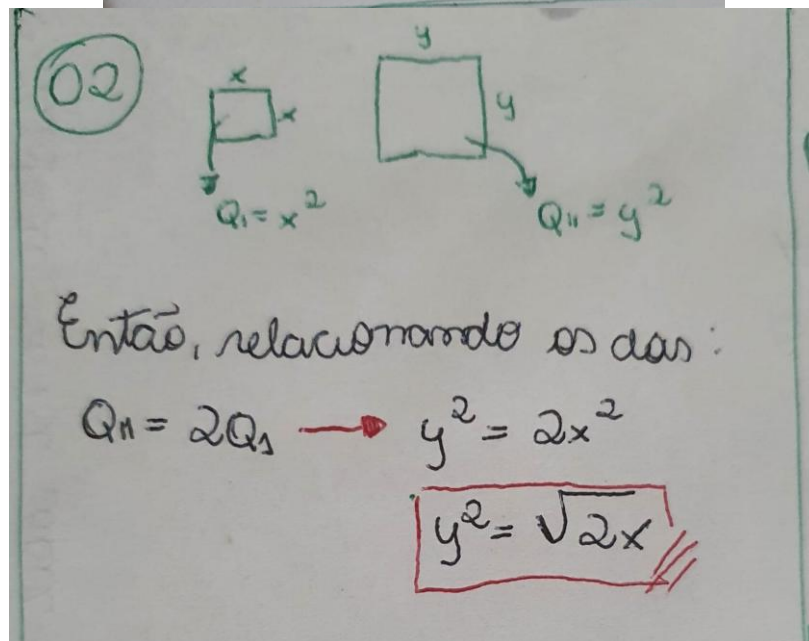 02
x
x
Q₁ = x²
y
y
Q₁₁ = y²
Então, relacionando os das:
Q₁₁ = 2Q₁ → y² = 2x²
y² = √2x